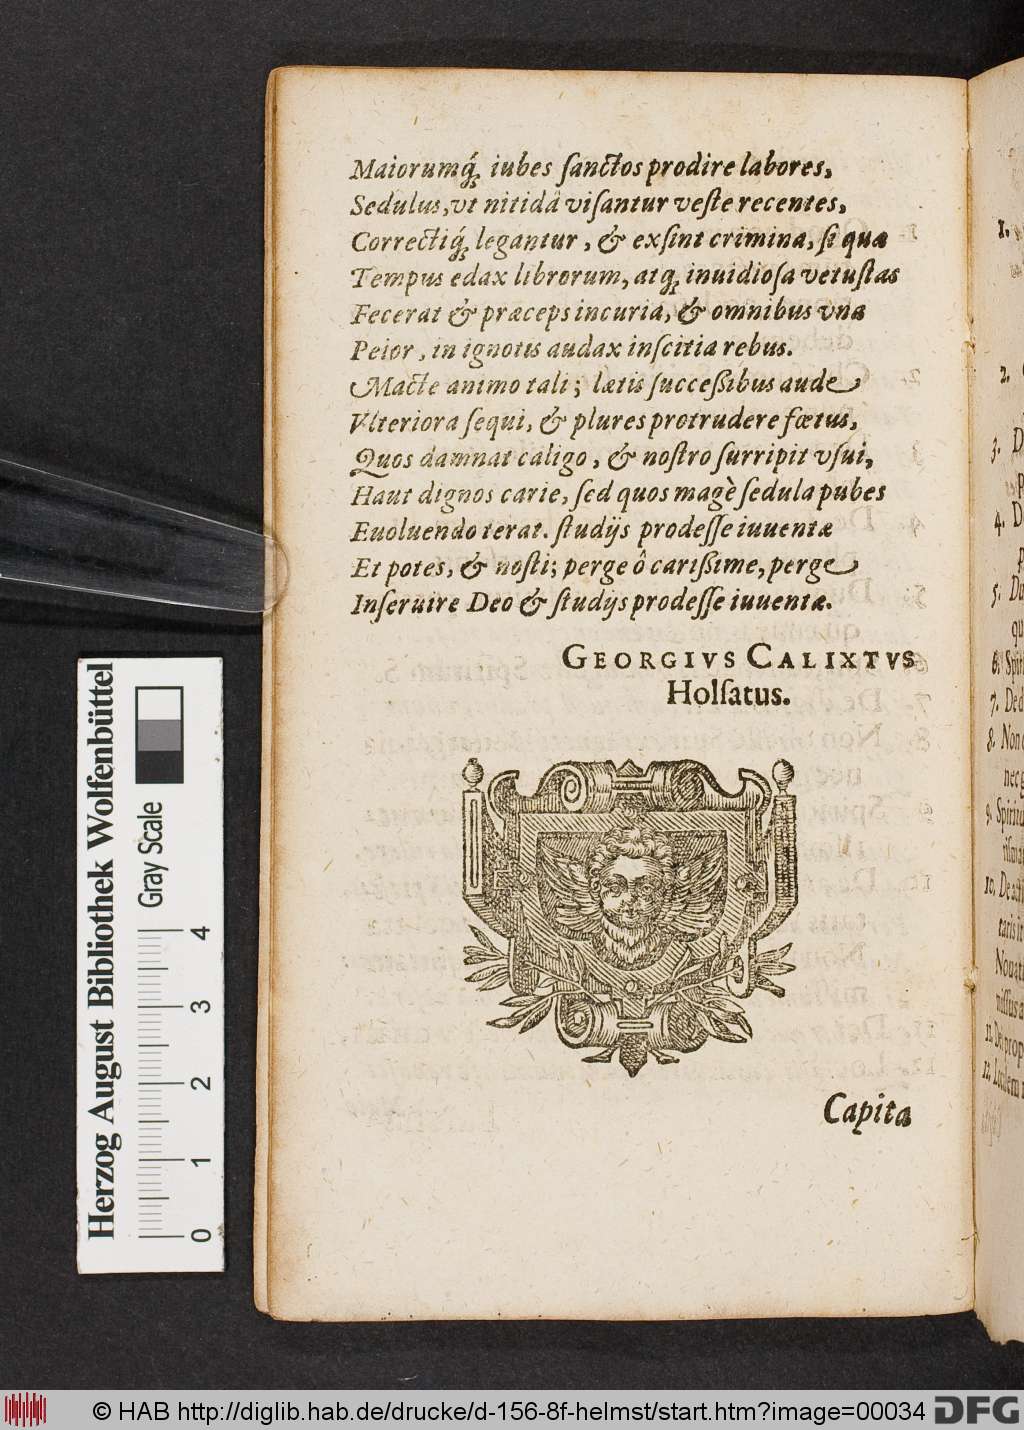 Maiorumq́; iubes ſanctos prodire labores,
Sedulus, vt nitidâ viſantur veſte recentes,
Correctiq́; legantur, & exſint crimina, ſi quæ
Tempus edax librorum, atq; inuidioſa vetuſtas
Fecerat & præceps incuria, & omnibus vna
Peior, in ignotis audax inſcitia rebus.
Macte animo tali; lætis ſucceßibus aude
Vlteriora ſequi, & plures protrudere fœtus,
Quos damnat caligo, & noſtro ſurripit vſui,
Haut dignos carie, ſed quos magè ſedula pubes
Euoluendo terat. ſtudijs prodeſſe iuuentæ
Et potes, & noſti; perge ô carißime, perge
Inſeruire Deo & ſtudijs prodeſſe iuuentæ.
GEORGIVS CALIXTVS
Holſatus.
Capita
1.
2.
3. D
4. D
5. Du
qu
6. Spi
7. De d
8. Non
nec
9. Spiritu
10. De
Nouat
11. De prop
12.
Herzog August Bibliothek Wolfenbüttel
Gray Scale
0 1 2 3 4
© HAB http://diglib.hab.de/drucke/d-156-8f-helmst/start.htm?image=00034
DFG